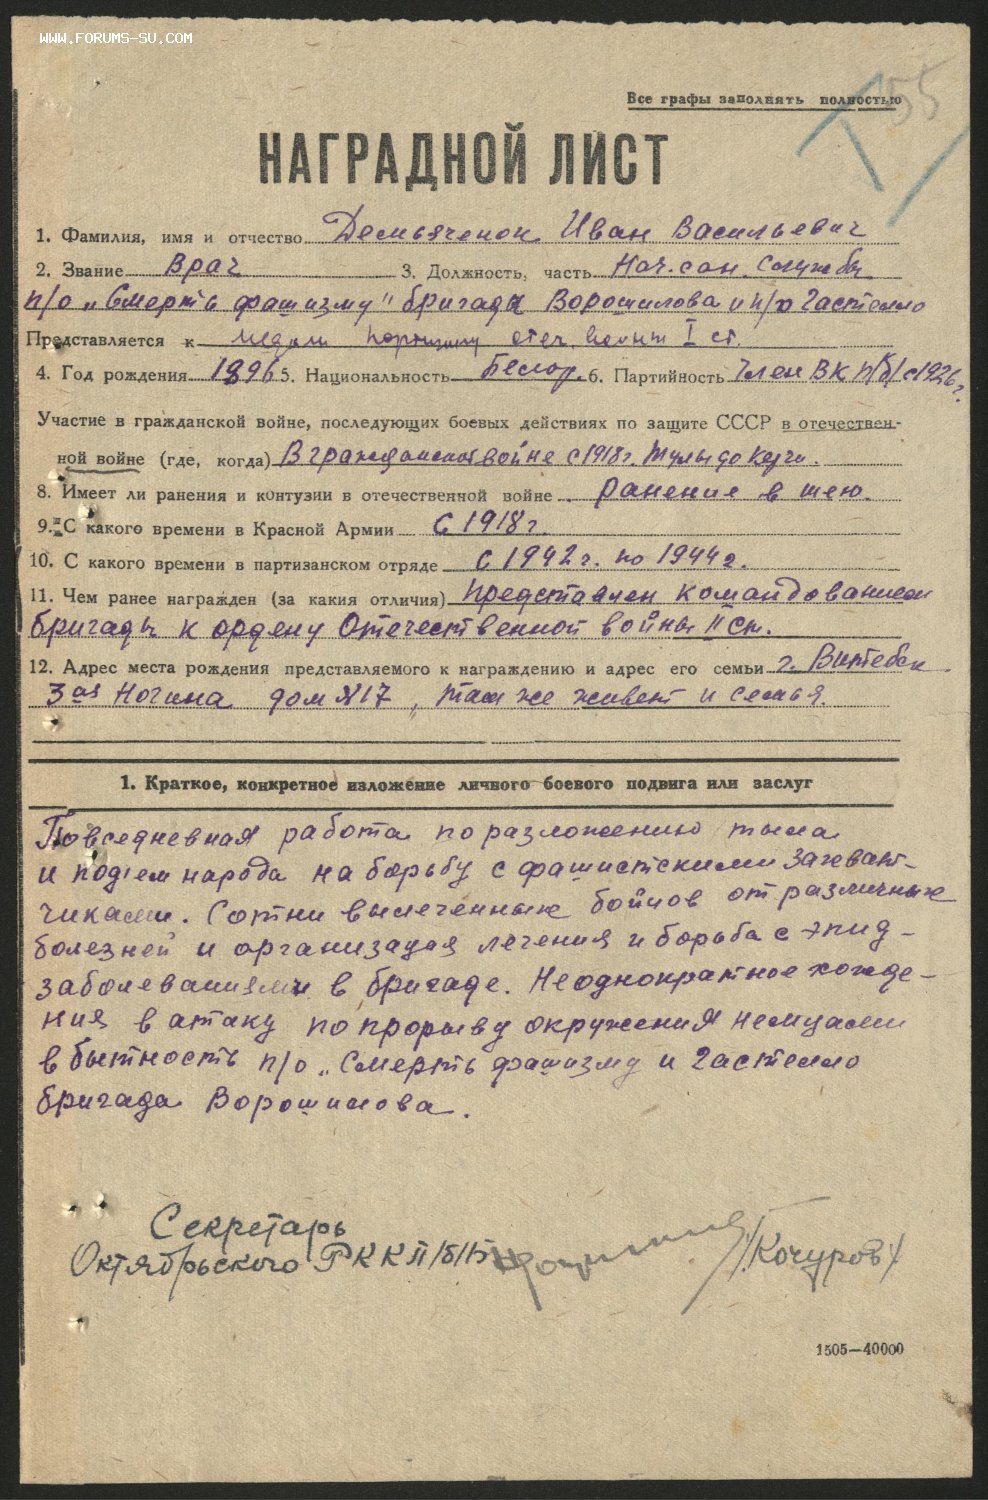 WWW.FORUMS-SU.COM
55
Все графы заполнять полностью
НАГРАДНОЙ ЛИСТ
1. Фамилия, имя и отчество Демьяченок Иван Васильевич
2. Звание Врач 3. Должность, часть Нач. сан. службы
п/о „Смерть фашизму" бригада Ворошилова и п/о Гастелло
Представляется к медали Партизану отеч. войны I ст.
4. Год рождения 1896 5. Национальность Белор. 6. Партийность Член ВКП/б/ с 1926 г.
Участие в гражданской войне, последующих боевых действиях по защите СССР в отечествен-
ной войне (где, когда) В гражданской войне с 1918 г. Тулы до
8. Имеет ли ранения и контузии в отечественной войне ранение в шею.
9. С какого времени в Красной Армии с 1918 г.
10. С какого времени в партизанском отряде с 1942 г. по 1944 г.
11. Чем ранее награжден (за какия отличия) представлен командованием
бригады к ордену Отечественной войны II ст.
12. Адрес места рождения представляемого к награждению и адрес его семьи г. Витебск
3ая Ногина дом №17, там же живет и семья.
1. Краткое, конкретное изложение личного боевого подвига или заслуг
Повседневная работа по разложению тыла
и под'ем народа на борьбу с фашистскими захват-
чиками. Сотни вылеченных бойцов от различных
болезней и организация лечения и борьба с эпид-
заболеваниями в бригаде. Неоднократное хожде-
ния в атаку по прорыву окружения немцами
в бытность п/о „Смерть фашизму и Гастелло
бригада Ворошилова.
Секретарь
Октябрьского РК КП/б/Б /Кочуров/
1505—40000